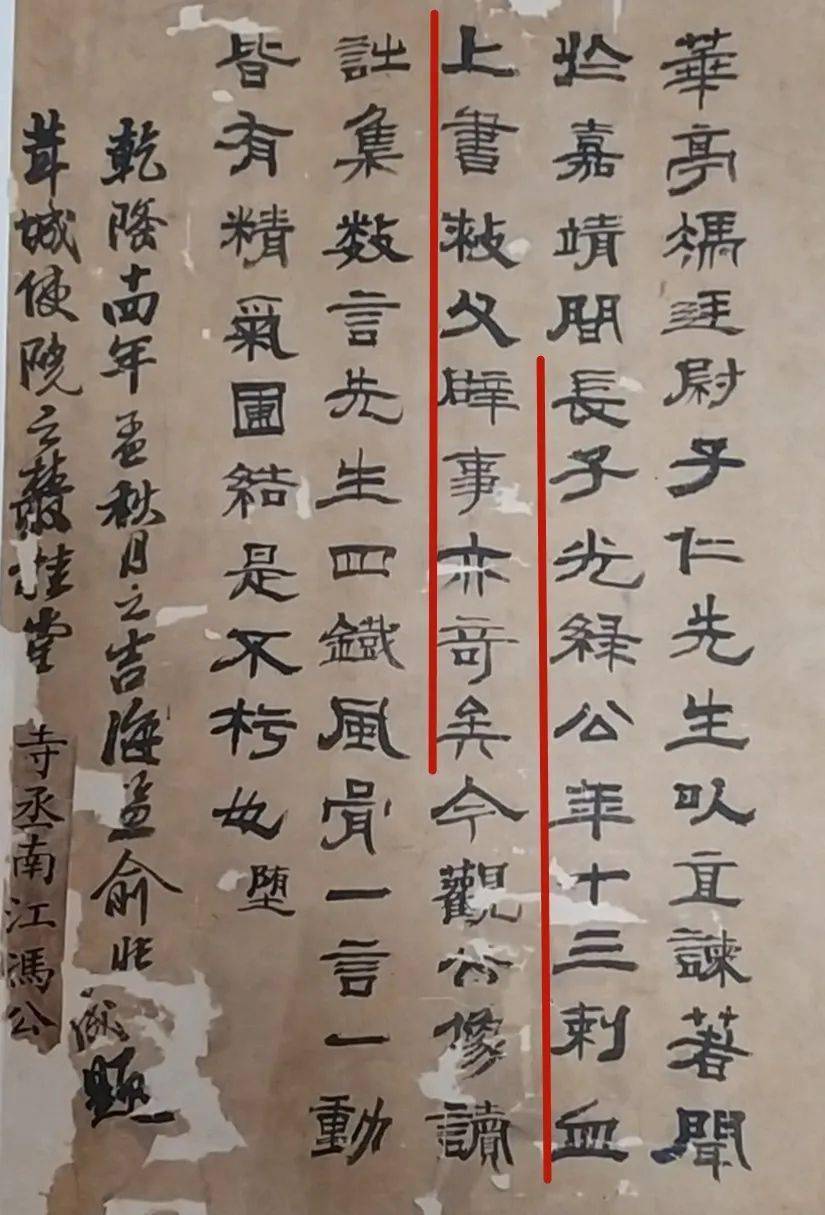 華亭馮廷尉子仁先生以直諫著聞
於嘉靖間長子光祿公年十三刺血
上書救父時事亦奇矣今觀公像讀
誌集數言先生四鐵風骨一言一動
皆有精氣團結是不朽也 墮
乾隆十四年孟秋月之吉海鹽俞 題
茸城使院之叢桂堂
寺丞南江馮公